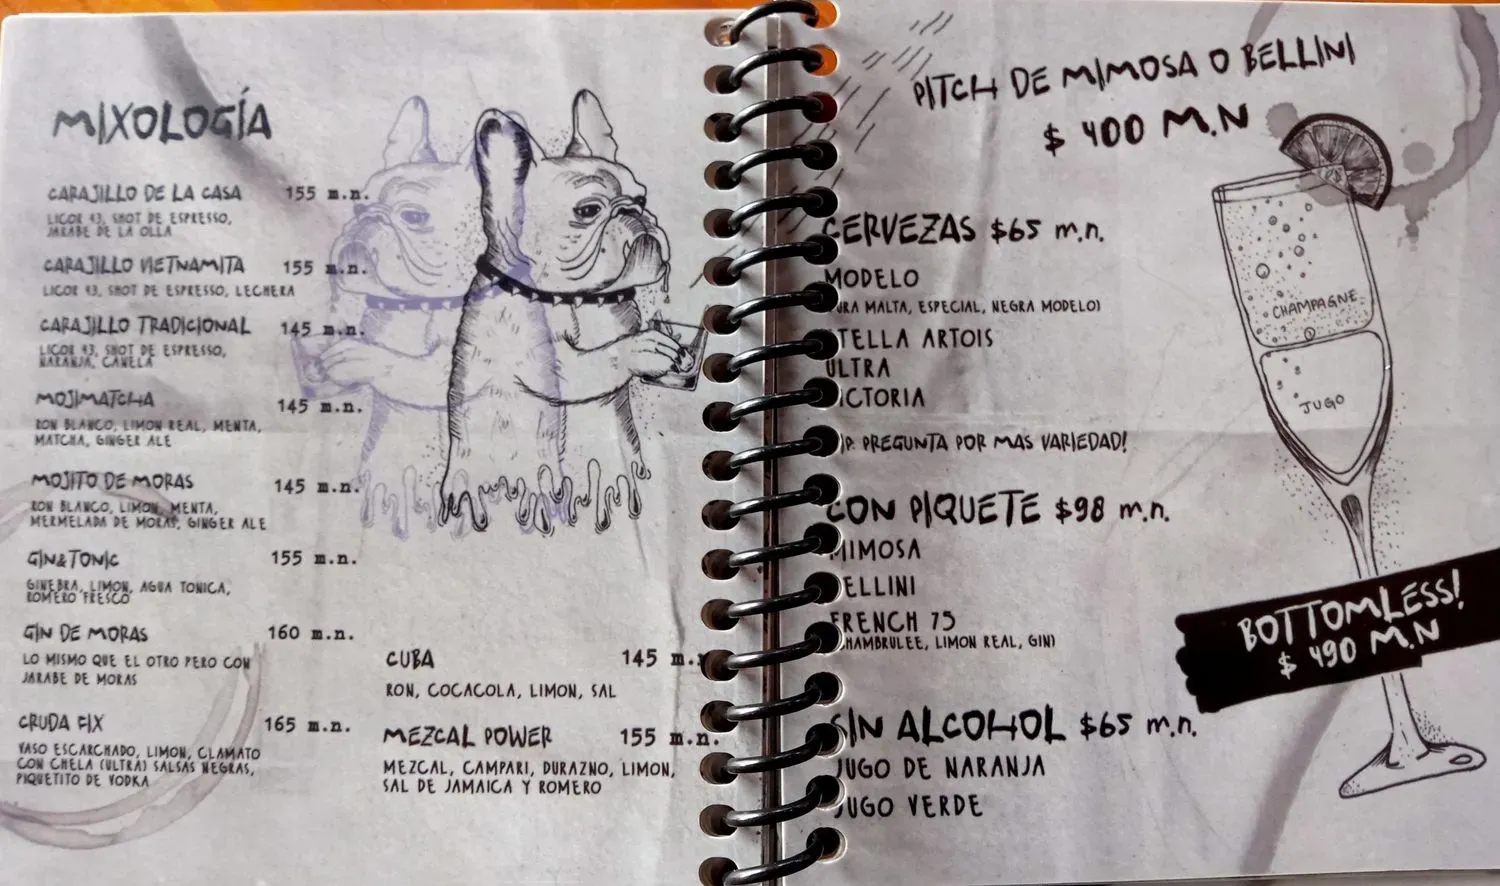 MIXOLOGÍA
CARAJILLO DE LA CASA 155 m.n.
LICOR 43, SHOT DE ESPRESSO,
JARABE DE LA OLLA
CARAJILLO VIETNAMITA 155 m.n.
LICOR 43, SHOT DE ESPRESSO, LECHERA
CARAJILLO TRADICIONAL 145 m.n.
LICOR 43, SHOT DE ESPRESSO,
NARANJA, CANELA
MOJIMATCHA 145 m.n.
RON BLANCO, LIMON REAL, MENTA,
MATCHA, GINGER ALE
MOJITO DE MORAS 145 m.n.
RON BLANCO, LIMON, MENTA,
MERMELADA DE MORAS, GINGER ALE
GIN&TONIC 155 m.n.
GINEBRA, LIMON, AGUA TONICA,
ROMERO FRESCO
GIN DE MORAS 160 m.n.
LO MISMO QUE EL OTRO PERO CON
JARABE DE MORAS
CRUDA FIX 165 m.n.
VASO ESCARCHADO, LIMON, CLAMATO
CON CHELA (ULTRA) SALSAS NEGRAS,
PIQUETITO DE VODKA
CUBA 145 m.n.
RON, COCACOLA, LIMON, SAL
MEZCAL POWER 155 m.n.
MEZCAL, CAMPARI, DURAZNO, LIMON,
SAL DE JAMAICA Y ROMERO
PITCH DE MIMOSA O BELLINI
$ 400 M.N
CERVEZAS $65 m.n.
MODELO
MALTA, ESPECIAL, NEGRA MODELO)
STELLA ARTOIS
ULTRA
VICTORIA
PREGUNTA POR MAS VARIEDAD!
CON PIQUETE $98 m.n.
MIMOSA
BELLINI
FRENCH 75
(CHAMBRULEE, LIMON REAL, GIN)
SIN ALCOHOL $65 m.n.
JUGO DE NARANJA
JUGO VERDE
CHAMPAGNE
JUGO
BOTTOMLESS!
$ 490 M.N